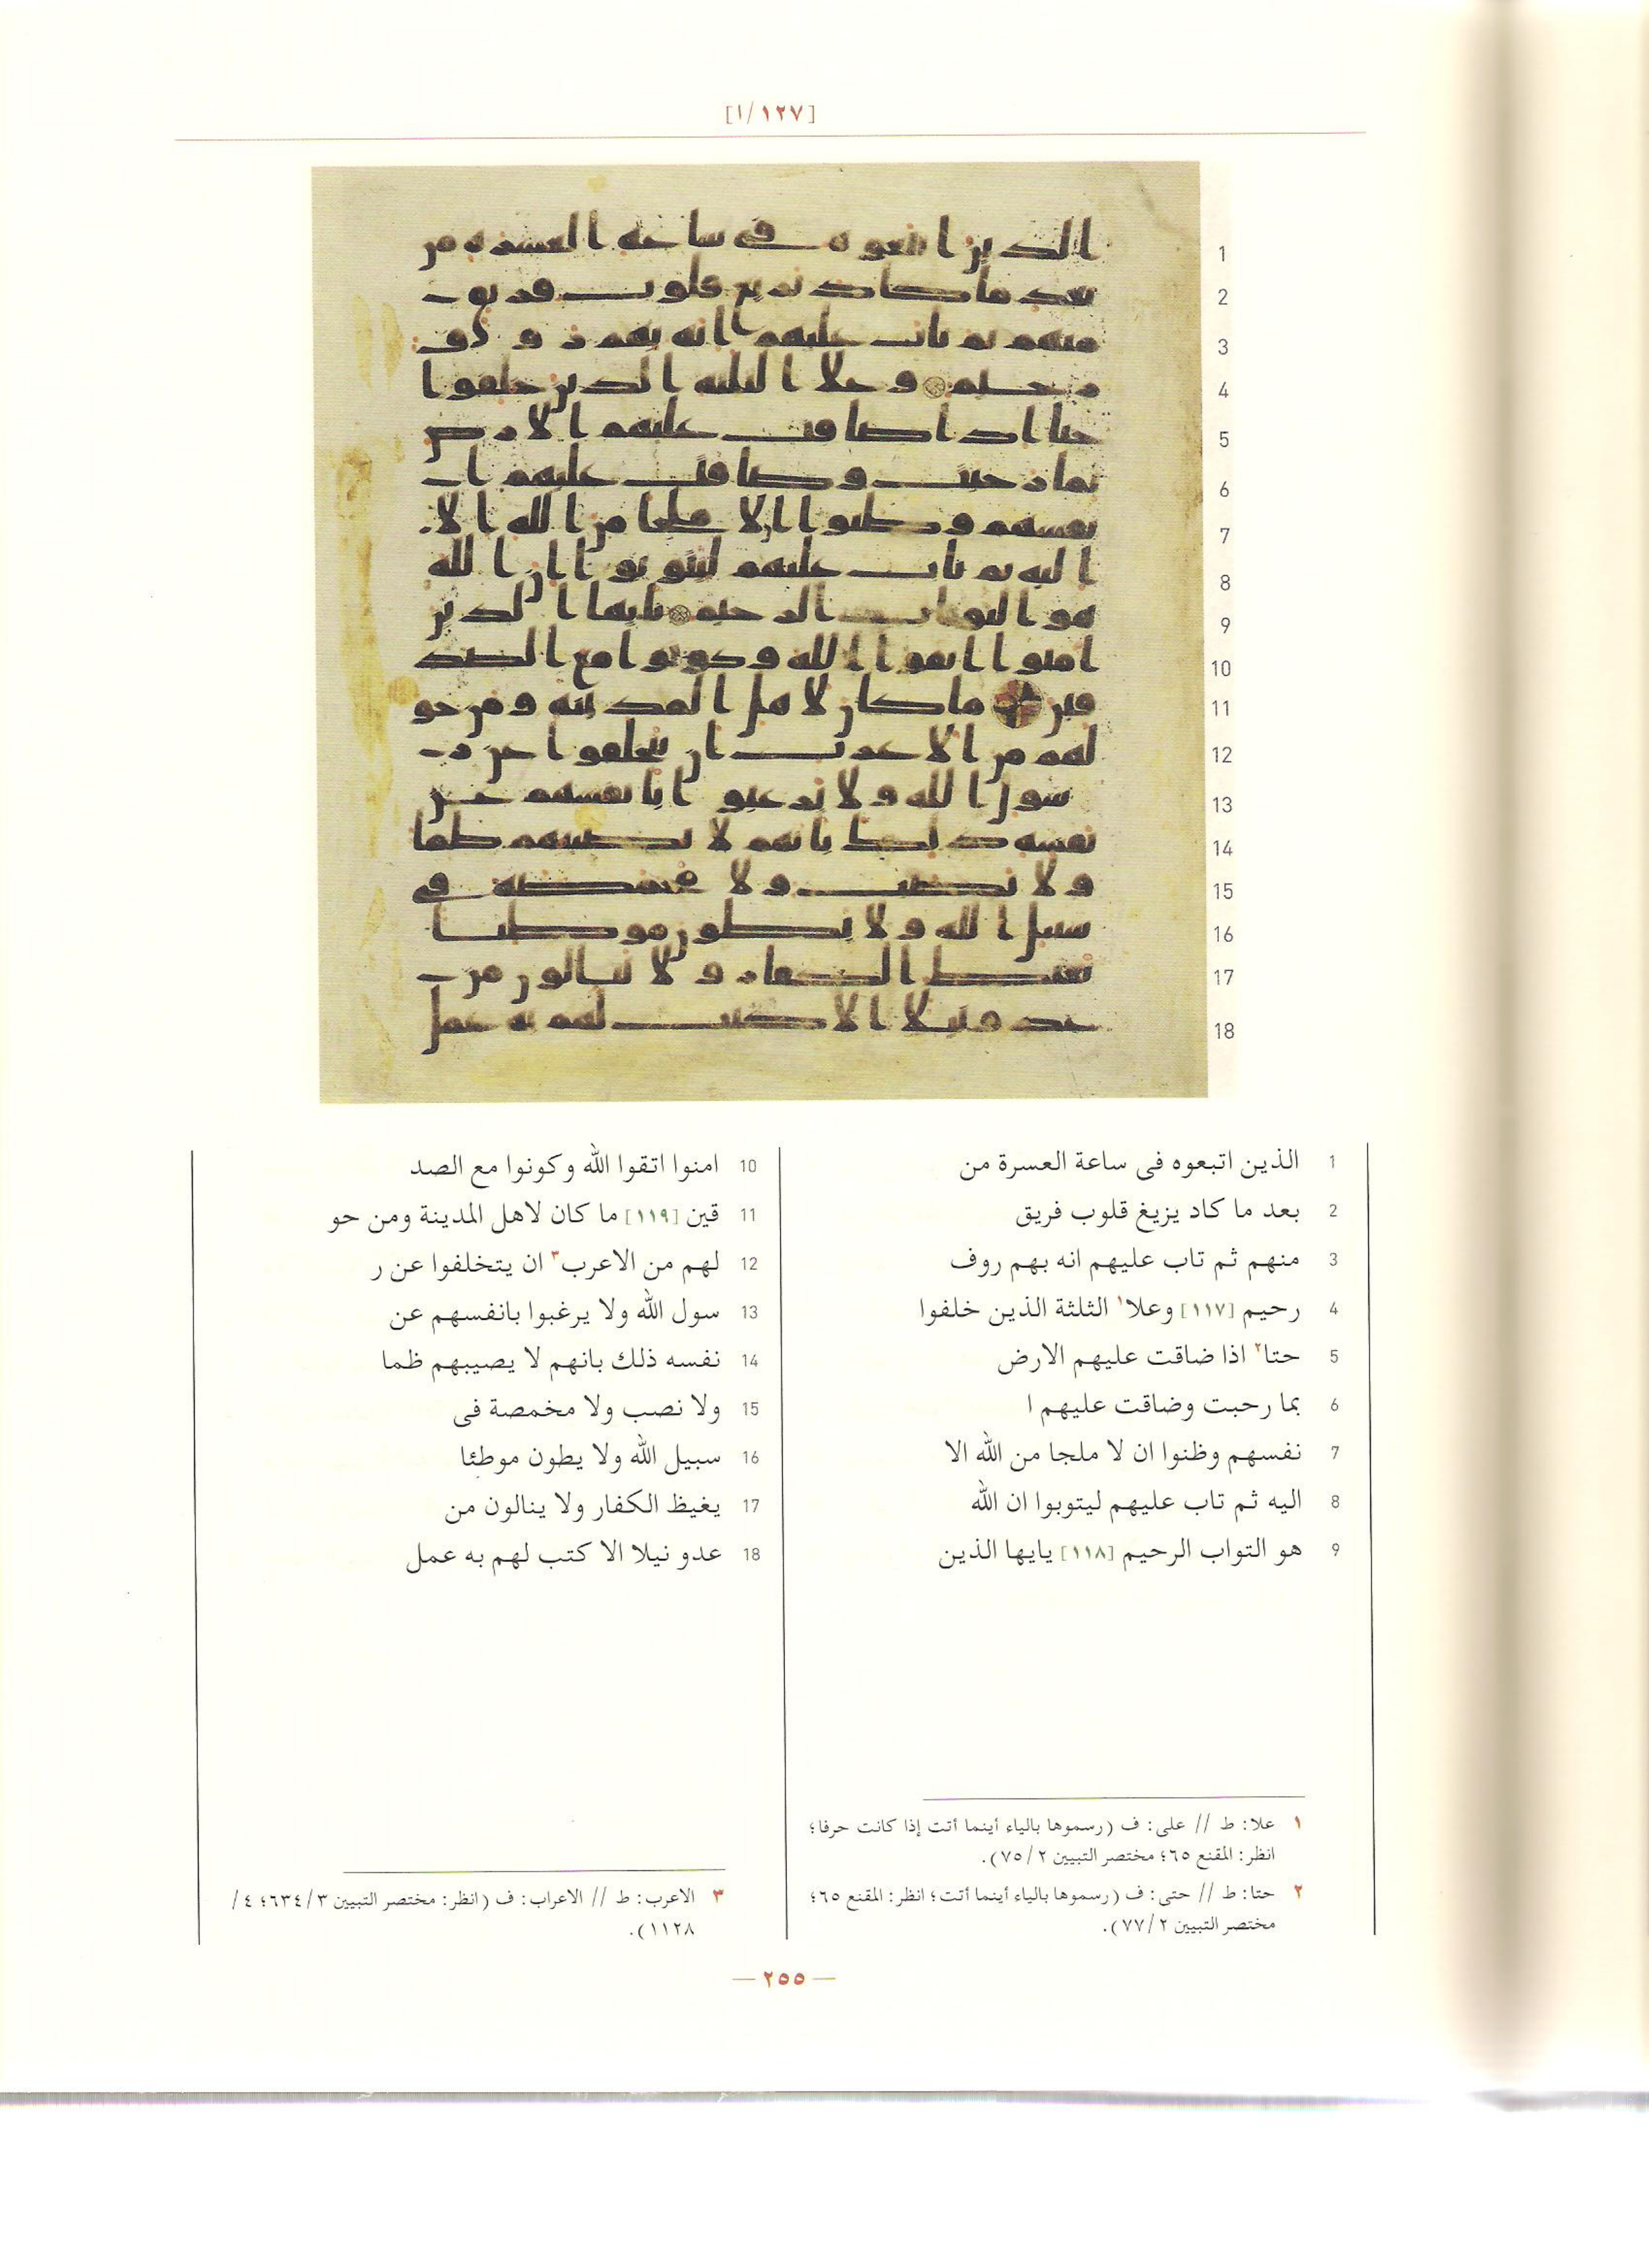 [١/١٢٧]
1 الذين اتبعوه فى ساعة العسرة من
2 بعد ما كاد يزيغ قلوب فريق
3 منهم ثم تاب عليهم انه بهم روف
4 رحيم [١١٧] وعلا١ الثلثة الذين خلفوا
5 حتا٢ اذا ضاقت عليهم الارض
6 بما رحبت وضاقت عليهم ا
7 نفسهم وظنوا ان لا ملجا من الله الا
8 اليه ثم تاب عليهم ليتوبوا ان الله
9 هو التواب الرحيم [١١٨] يايها الذين
10 امنوا اتقوا الله وكونوا مع الصد
11 قين [١١٩] ما كان لاهل المدينة ومن حو
12 لهم من الاعرب٣ ان يتخلفوا عن ر
13 سول الله ولا يرغبوا بانفسهم عن
14 نفسه ذلك بانهم لا يصيبهم ظما
15 ولا نصب ولا مخمصة فى
16 سبيل الله ولا يطون موطئا
17 يغيظ الكفار ولا ينالون من
18 عدو نيلا الا كتب لهم به عمل
١ علا: ط // على: ف (رسموها بالياء أينما أتت إذا كانت حرفا؛
انظر: المقنع ٦٥؛ مختصر التبيين ٧٥/٢).
٢ حتا: ط // حتى: ف (رسموها بالياء أينما أتت؛ انظر: المقنع ٦٥؛
مختصر التبيين ٧٧/٢).
٣ الاعرب: ط // الاعراب: ف (انظر: مختصر التبيين ٦٣٤/٣؛ ٤/
١١٢٨).
— ٢٥٥ —